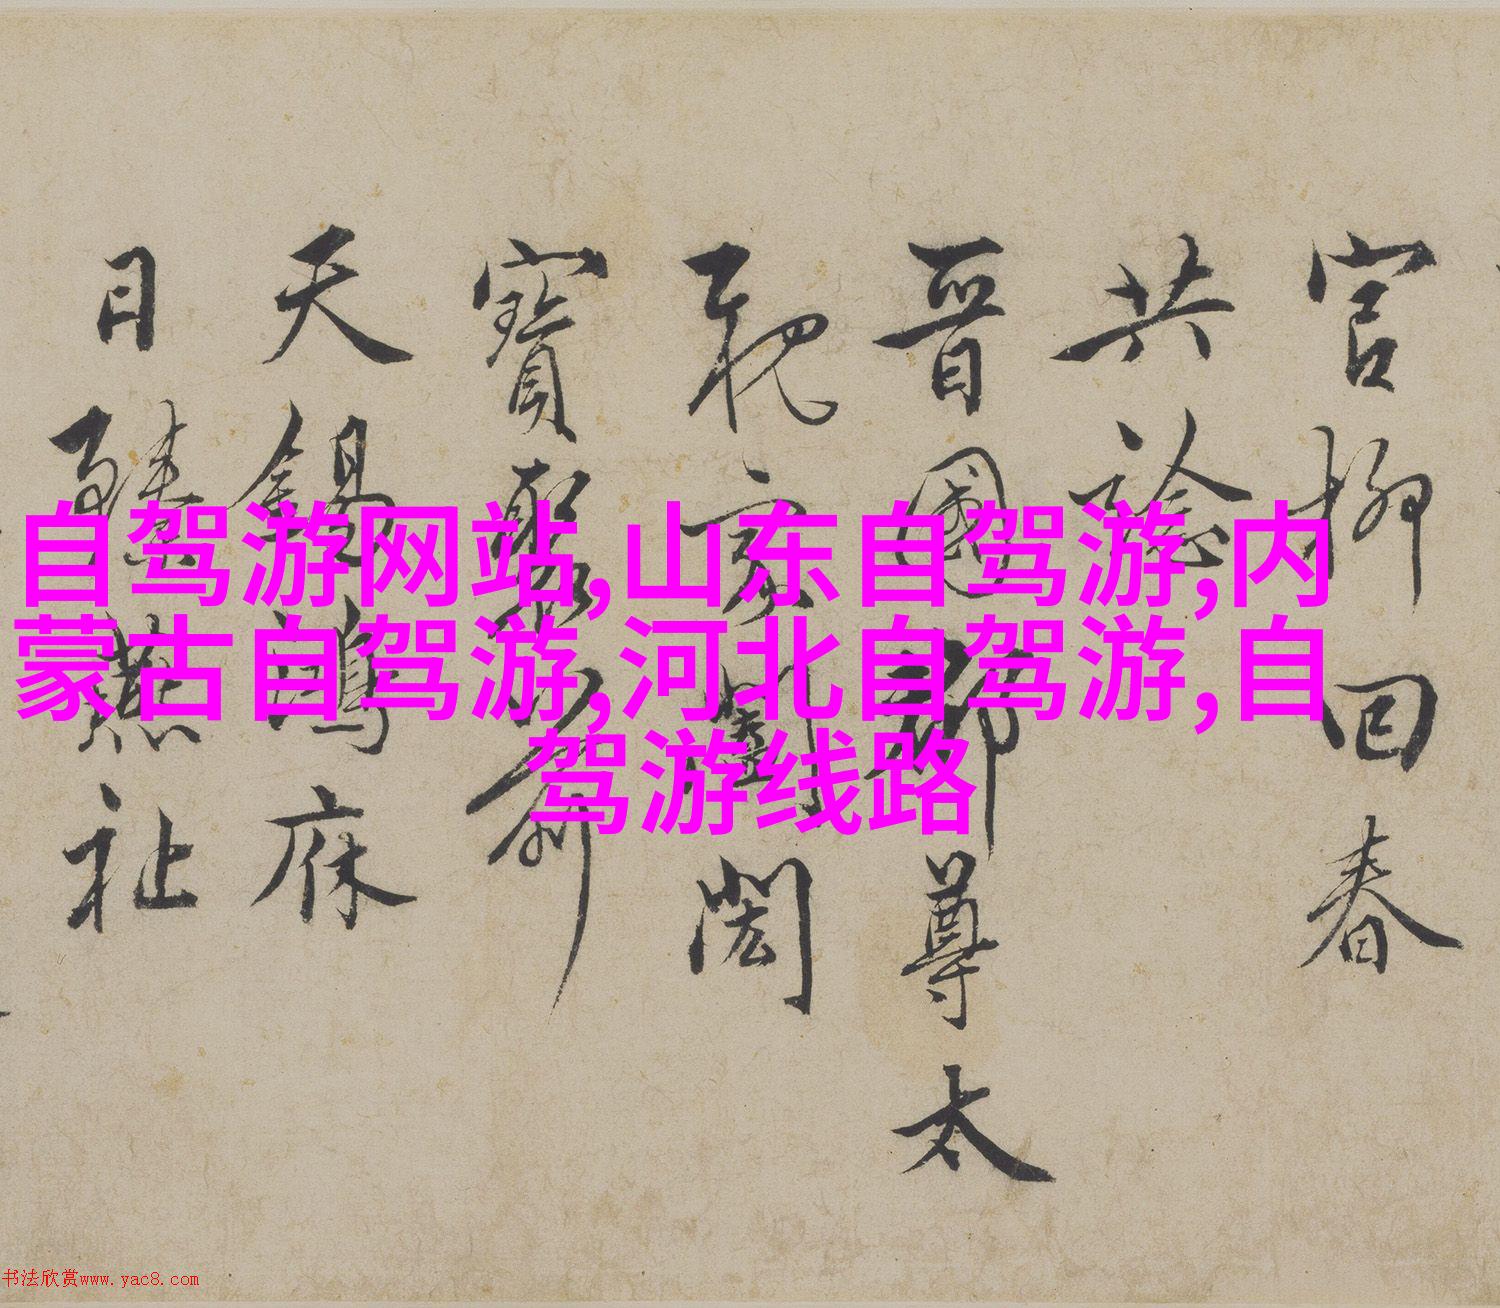 自驾游网站,山东自驾游,内
蒙古自驾游,河北自驾游,自
驾游线路
官柳回春
共諗
晋國郡尊太
家
寶
天錫鴻庥
日燕祉
书法欣赏www.yac8.com